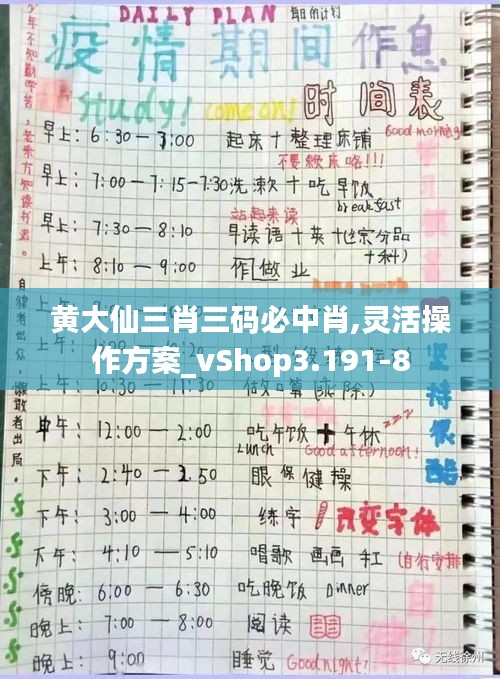 DAILY PLAN 每日的计划
疫情期间作息
Study! come on! 时间表
Good morning
早上：6:30—7:00 起床＋整理床铺
不要赖床咯!!!
早上：7:00—7:15-7:30 洗漱＋吃早饭
breakfast
站起来读
早上：7:30—8:10 早读语＋英＋
上午：8:10—9:00 作业
黄大仙三肖三码必中肖,灵活操
作方案_vShop3.191-8
中午：12:00—2:00 吃午饭＋午休 zzz
Lunch Good afternoon!
下午：2:40—2:50 眼保健操
下午：3:00—4:00 练字 改变字体
下午：4:10—5:10 唱歌 画画 手工（自行安排
傍晚：6:00—6:30 吃晚饭 Dinner
晚上：7:00—8:00 阅读
晚上：9:00 睡觉 Good night!
坚持很酷
无线徐州